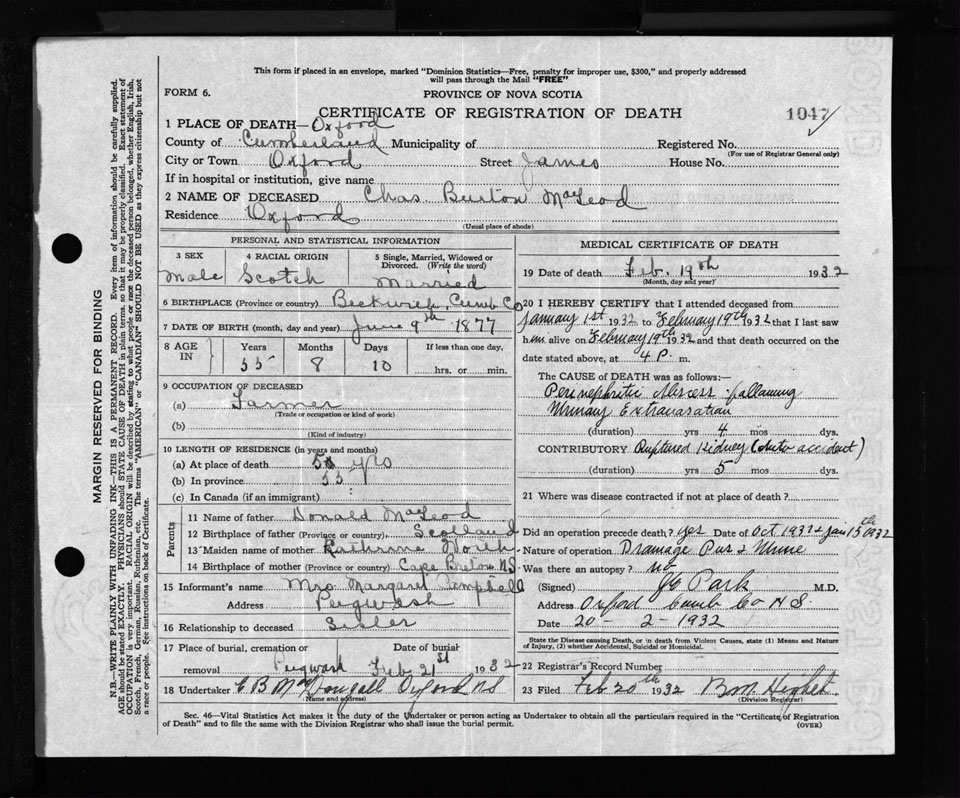 This form if placed in an envelope, marked "Dominion Statistics—Free, penalty for improper use, $300," and properly addressed
will pass through the Mail "FREE"
FORM 6.
PROVINCE OF NOVA SCOTIA
CERTIFICATE OF REGISTRATION OF DEATH
1047
1 PLACE OF DEATH—Oxford
County of Cumberland Municipality of Registered No.
(For use of Registrar General only)
City or Town Oxford Street James House No.
If in hospital or institution, give name
2 NAME OF DECEASED Chas. Burton MacLeod
Residence Oxford
(Usual place of abode)
PERSONAL AND STATISTICAL INFORMATION
3 SEX
Male
4 RACIAL ORIGIN
Scotch
5 Single, Married, Widowed or
Divorced. (Write the word)
Married
6 BIRTHPLACE (Province or country) Beckwith, Cumb. Co
7 DATE OF BIRTH (month, day and year) June 9th 1877
8 AGE IN
Years
Months
Days
If less than one day,
55 8 10
hrs. or min.
9 OCCUPATION OF DECEASED
(a) Farmer
(Trade or occupation or kind of work)
(b)
(Kind of industry)
10 LENGTH OF RESIDENCE (in years and months)
(a) At place of death yrs
(b) In province 55
(c) In Canada (if an immigrant)
Parents
11 Name of father Donald MacLeod
12 Birthplace of father (Province or country) Scotland
13 Maiden name of mother Katherine
14 Birthplace of mother (Province or country) Cape Breton N.S.
15 Informant's name Mrs. Margaret Campbell
Address Pugwash
16 Relationship to deceased Sister
17 Place of burial, cremation or Date of burial
removal Pugwash Feb 21st 1932
18 Undertaker C B MacDougall Oxford N.S
(Name and address)
MEDICAL CERTIFICATE OF DEATH
19 Date of death Feb. 19th 1932
(Month, day and year)
20 I HEREBY CERTIFY that I attended deceased from
January 1st 1932 to February 19th 1932 that I last saw
him alive on February 19th 1932 and that death occurred on the
date stated above, at 4 P. m.
The CAUSE OF DEATH was as follows:—
Perinephritic Abscess following
Urinary Extravasation
(duration) yrs 4 mos dys.
CONTRIBUTORY Ruptured Kidney (Auto accident)
(duration) yrs 5 mos dys.
21 Where was disease contracted if not at place of death?
Did an operation precede death? yes Date of Oct 1931 & Jan 15th 1932
Nature of operation Drainage Pus & Urine
Was there an autopsy? no
(Signed) Park M.D.
Address Oxford Cumb Co N.S.
Date 20 - 2 - 1932
State the Disease causing Death, or in death from Violent Causes, state (1) Means and Nature
of Injury, (2) whether Accidental, Suicidal or Homicidal.
22 Registrar's Record Number
23 Filed Feb 20th 1932
(Division Registrar)
Sec. 46—Vital Statistics Act makes it the duty of the Undertaker or person acting as Undertaker to obtain all the particulars required in the "Certificate of Registration
of Death" and to file same with the Division Registrar who shall issue the burial permit.
(OVER)
MARGIN RESERVED FOR BINDING
N.B.—WRITE PLAINLY WITH UNFADING INK—THIS IS A PERMANENT RECORD. Every item of information should be carefully supplied.
AGE should be stated EXACTLY. PHYSICIANS should STATE CAUSE OF DEATH in plain terms, so that it may be properly classified. Exact statement of
OCCUPATION is very important. RACIAL ORIGIN will be described by stating to what people or race the deceased person belonged, whether English, Irish,
Scotch, French, German, Russian, Ruthenian, etc. The terms "AMERICAN" or "CANADIAN" SHOULD NOT BE USED as they express citizenship but not
a race or people. See instructions on back of Certificate.